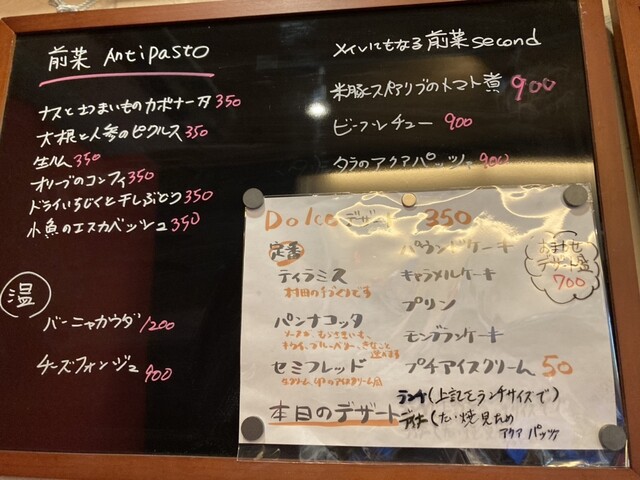 前菜 Antipasto
ナスとさつまいものカポナータ 350
大根と人参のピクルス 350
生ハム 350
オリーブのコンフィ 350
ドライいちじくと干しぶどう 350
小魚のエスカベッシュ 350
温
バーニャカウダ 1200
チーズフォンジュ 900
メインにもなる前菜 second
米豚スペアリブのトマト煮 900
ビーフシチュー 900
タラのアクアパッツァ 900
Dolce デザート 350
定番
ティラミス
パンナコッタ
セミフレッド
本日のデザート
パウンドケーキ
キャラメルケーキ
プリン
モンブランケーキ
プチアイスクリーム 50
おまかせ
デザート盛
700
ランチ(上記をランチサイズで)
ディナー(たい焼見ため
アクアパッツァ